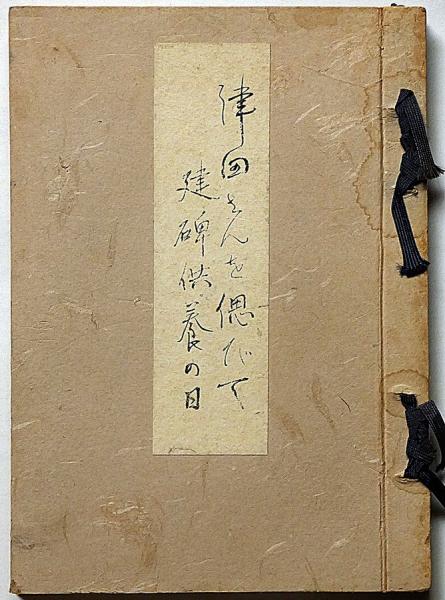 津田さんを偲びて
建碑供養の日